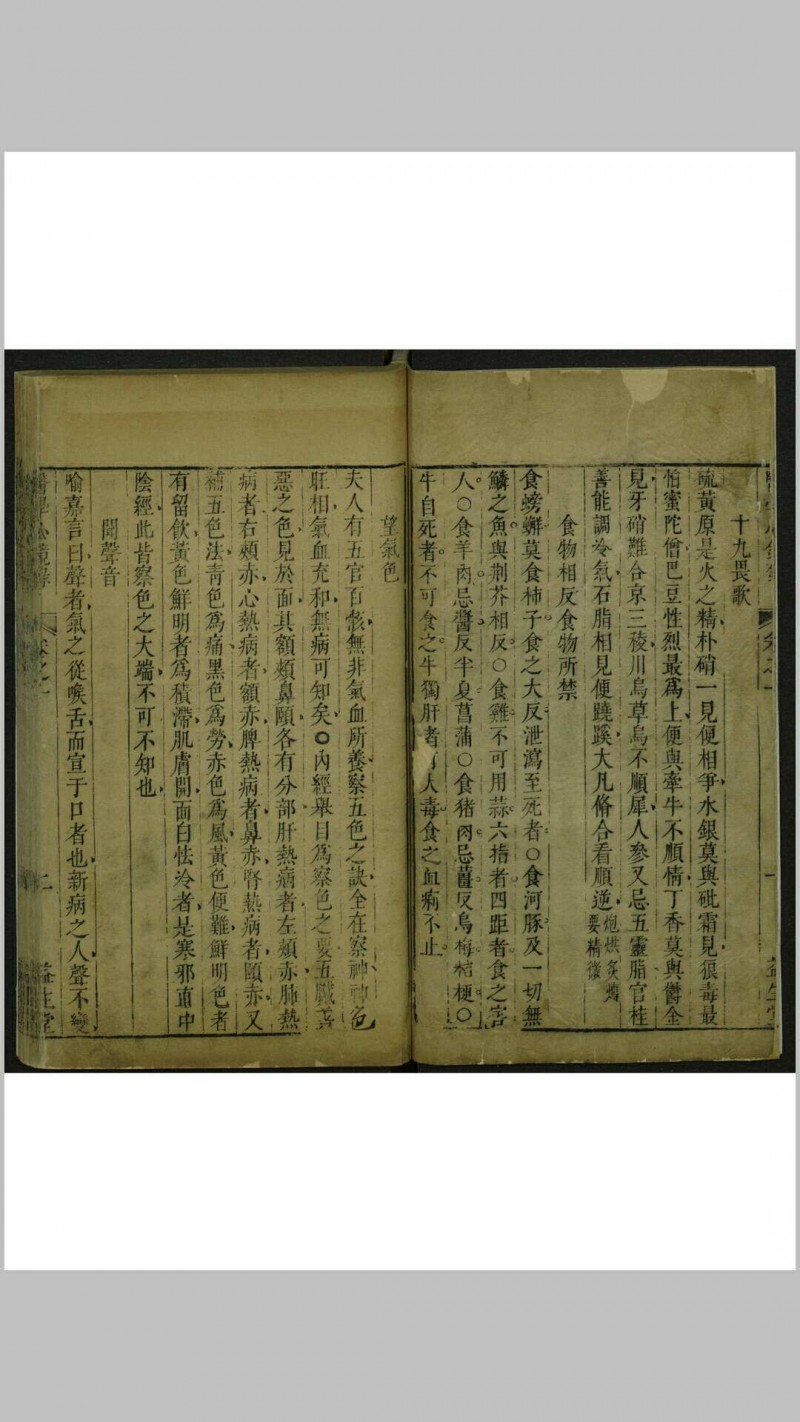 十九畏歌
硫黃原是火之精朴硝一見便相爭水銀莫與砒霜見狠毒最
怕蜜陀僧巴豆性烈最爲上便與牽牛不順情丁香莫與鬱金
見牙硝難合京三稜川烏草烏不順犀人參又忌五靈脂官桂
善能調冷氣石脂相見便蹺蹊大凡脩合看順逆炮爁炙煿
要精微
食物相反食物所禁
食螃蠏莫食柿子食之大反泄瀉至死者○食河豚及一切無
鱗之魚與荆芥相反○食雞不可用蒜六指者四距者食之害
人○食羊肉忌醬反半夏菖蒲○食猪肉忌薑反烏梅桔梗○
牛自死者不可食之牛獨肝者有大毒食之血痢不止
望氣色
夫人有五官百骸無非氣血所養察五色之訣全在察神神色
旺相氣血充和無病可知矣○內經舉目爲察色之要五臟善
惡之色見於面其額頰鼻頤各有分部肝熱病者左頰赤肺熱
病者右頰赤心熱病者額赤脾熱病者鼻赤腎熱病者頤赤又
補五色法靑色爲痛黑色爲勞赤色爲風黃色便難鮮明色者
有留飲黃色鮮明者爲積滯肌膚開面白怯冷者是寒邪直中
陰經此皆察色之大端不可不知也
聞聲音
喻嘉言曰聲者氣之從喉舌而宣于口者也新病之人聲不變
醫學心鏡錄 卷之一 二 益生堂